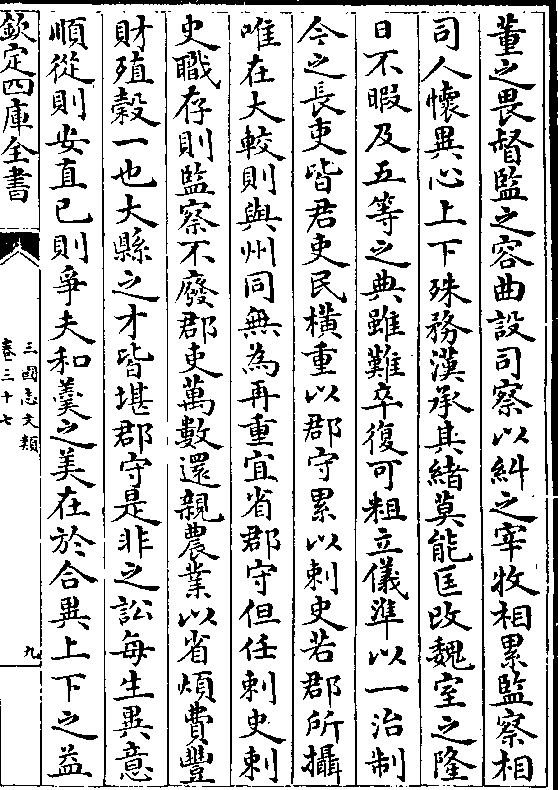 董之畏督監之容曲設司察以糾之宰牧相累監察相
司人懷異心上下殊務漢承其緒莫能匡改魏室之隆
日不暇及五等之典雖難卒復可粗立儀準以一治制
今之長吏皆君吏民橫重以郡守累以刺史若郡所攝
唯在大較則與州同無為再重宜省郡守但任刺史刺
史職存則監察不廢郡吏萬數還親農業以省煩費豐
財殖穀一也大縣之才皆堪郡守是非之訟每生異意
順從則安直已則爭夫和羹之美在於合異上下之益
欽定四庫全書
三國志文類
卷三十七
九